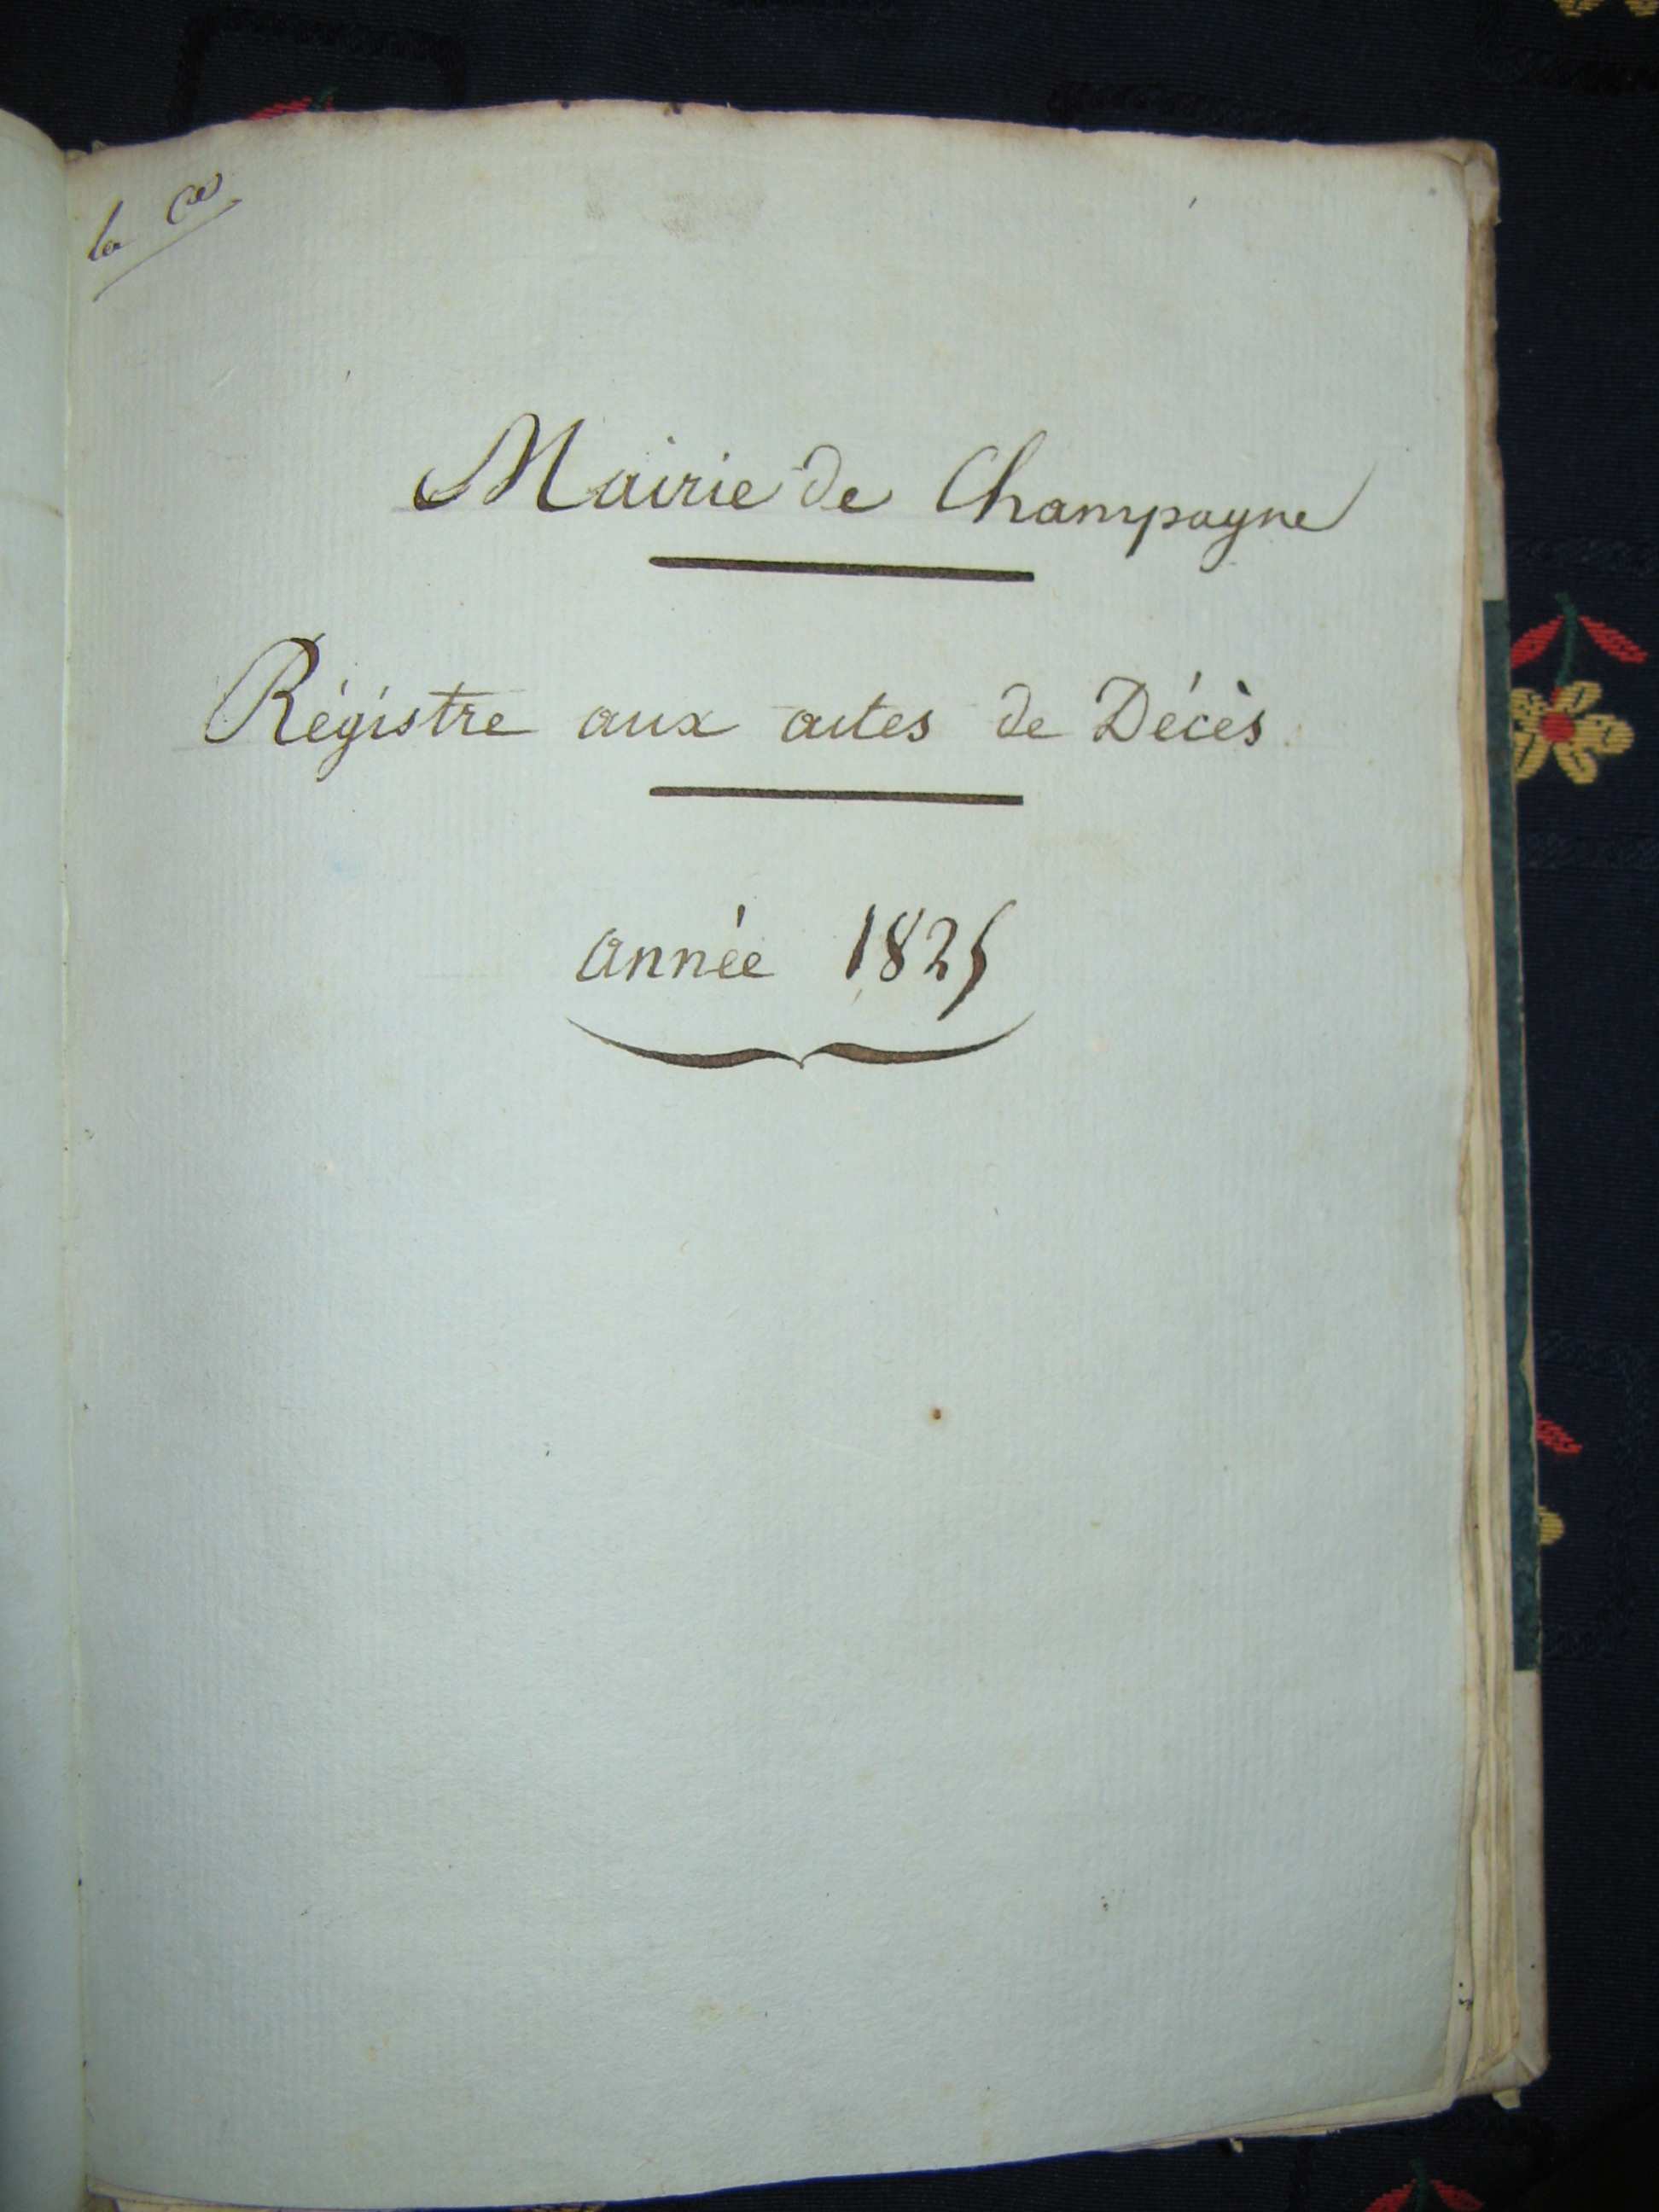 Mairie de Champagne
Régistre aux actes de Décès
année 1825